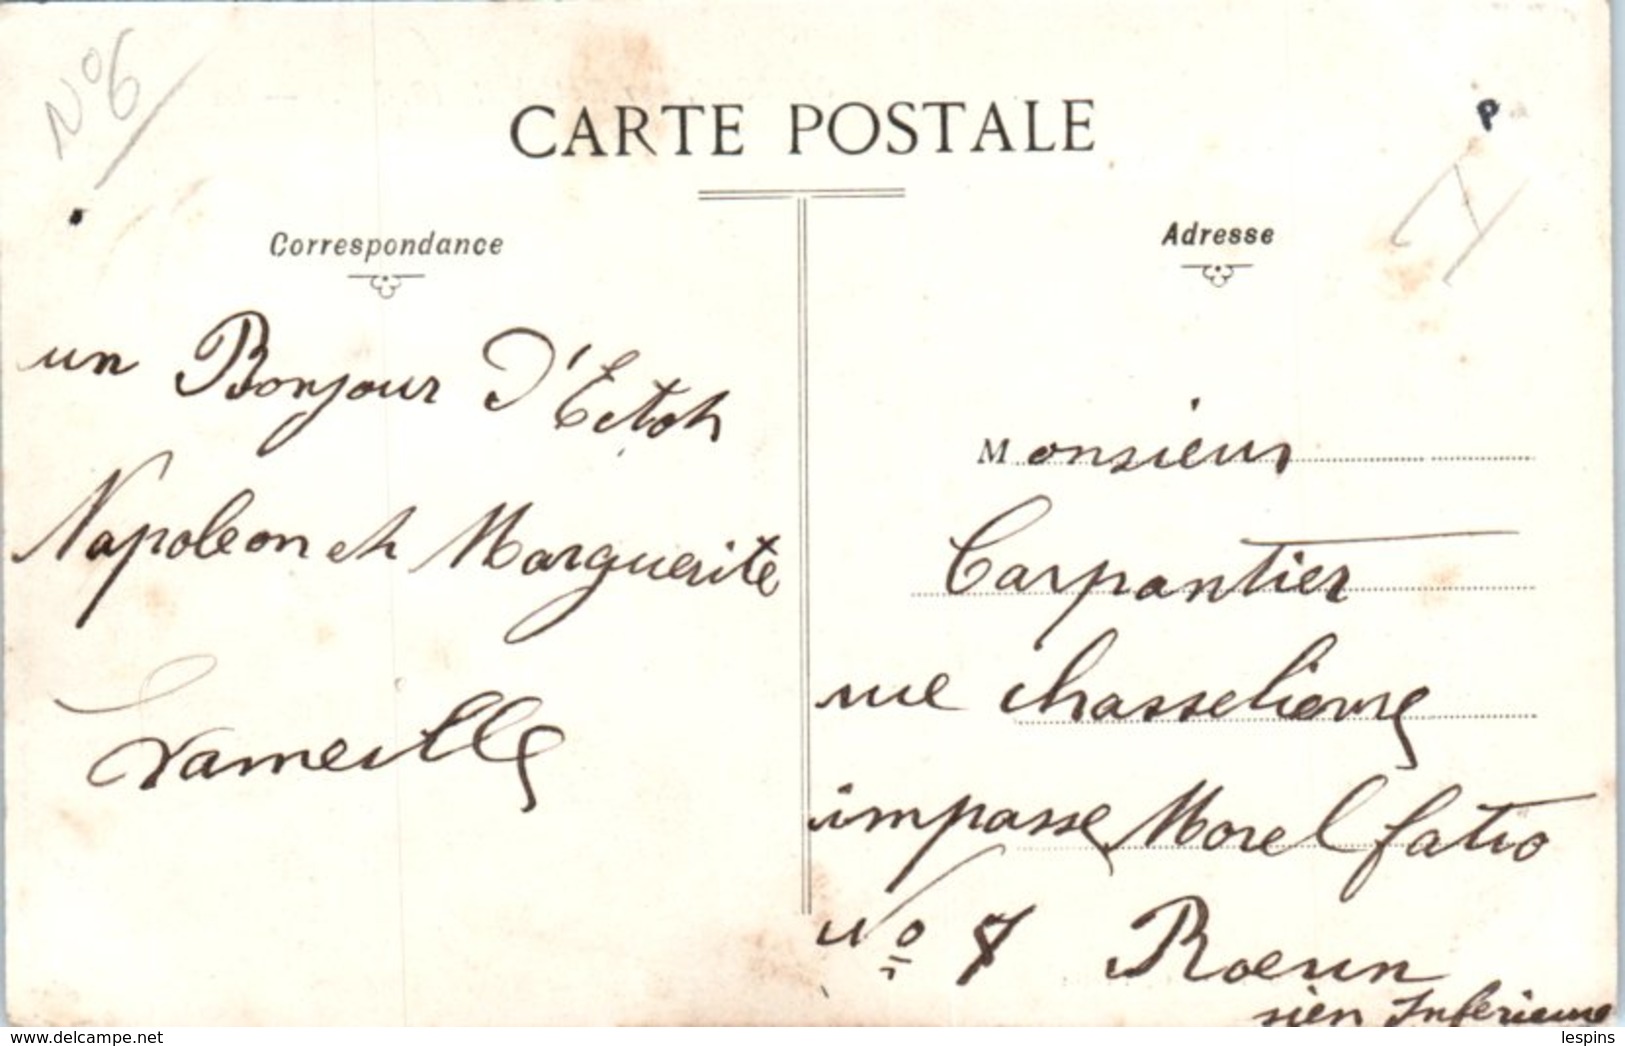 N° 6
CARTE POSTALE
Correspondance
Adresse
P
un Bonjour D'Etoh
Napoleon et Marguerite
Lameille
Monsieur
Carpantier
rue Chasselievre
impasse Morel fatio
No 7 Roeun
sien Inferieure
delcampe.net
lespins